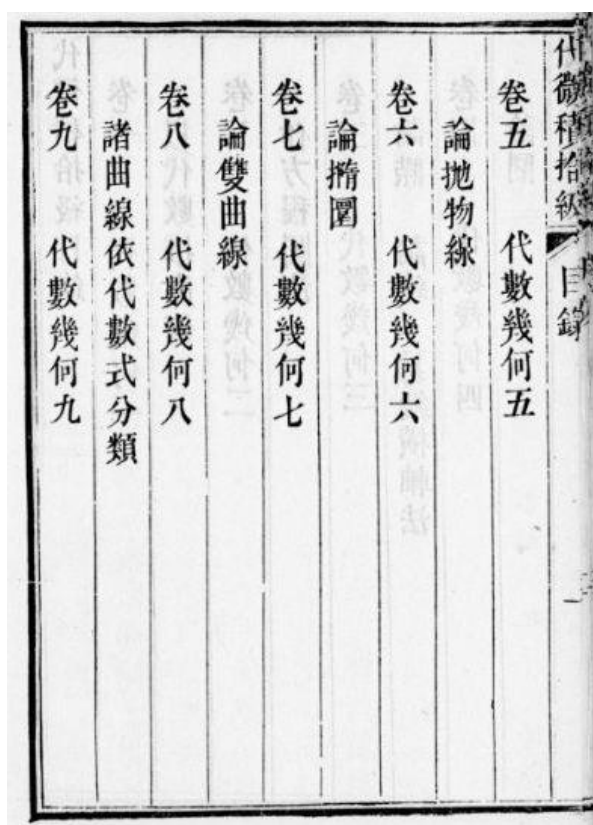 代微積拾級 目錄
卷五 代數幾何五
論拋物線
卷六 代數幾何六
論橢圜
卷七 代數幾何七
論雙曲線
卷八 代數幾何八
諸曲線依代數式分類
卷九 代數幾何九